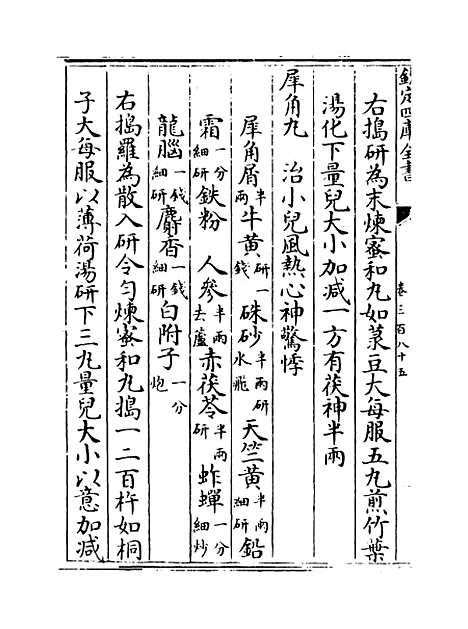 欽定四庫全書
卷三百八十五
右搗研為末煉蜜和丸如菉豆大每服五丸煎竹葉
湯化下量兒大小加減一方有茯神半兩
犀角丸　治小兒風熱心神驚悸
犀角屑半兩牛黃研一錢硃砂半兩研水飛天竺黃半兩細研鉛
霜一分細研鉄粉　人參半兩去蘆赤茯苓半兩研蚱蟬一分細炒
龍腦一錢細研麝香一錢細研白附子一分炮
右搗羅為散入研令勻煉蜜和丸搗一二百杵如桐
子大每服以薄荷湯研下三丸量兒大小以意加減